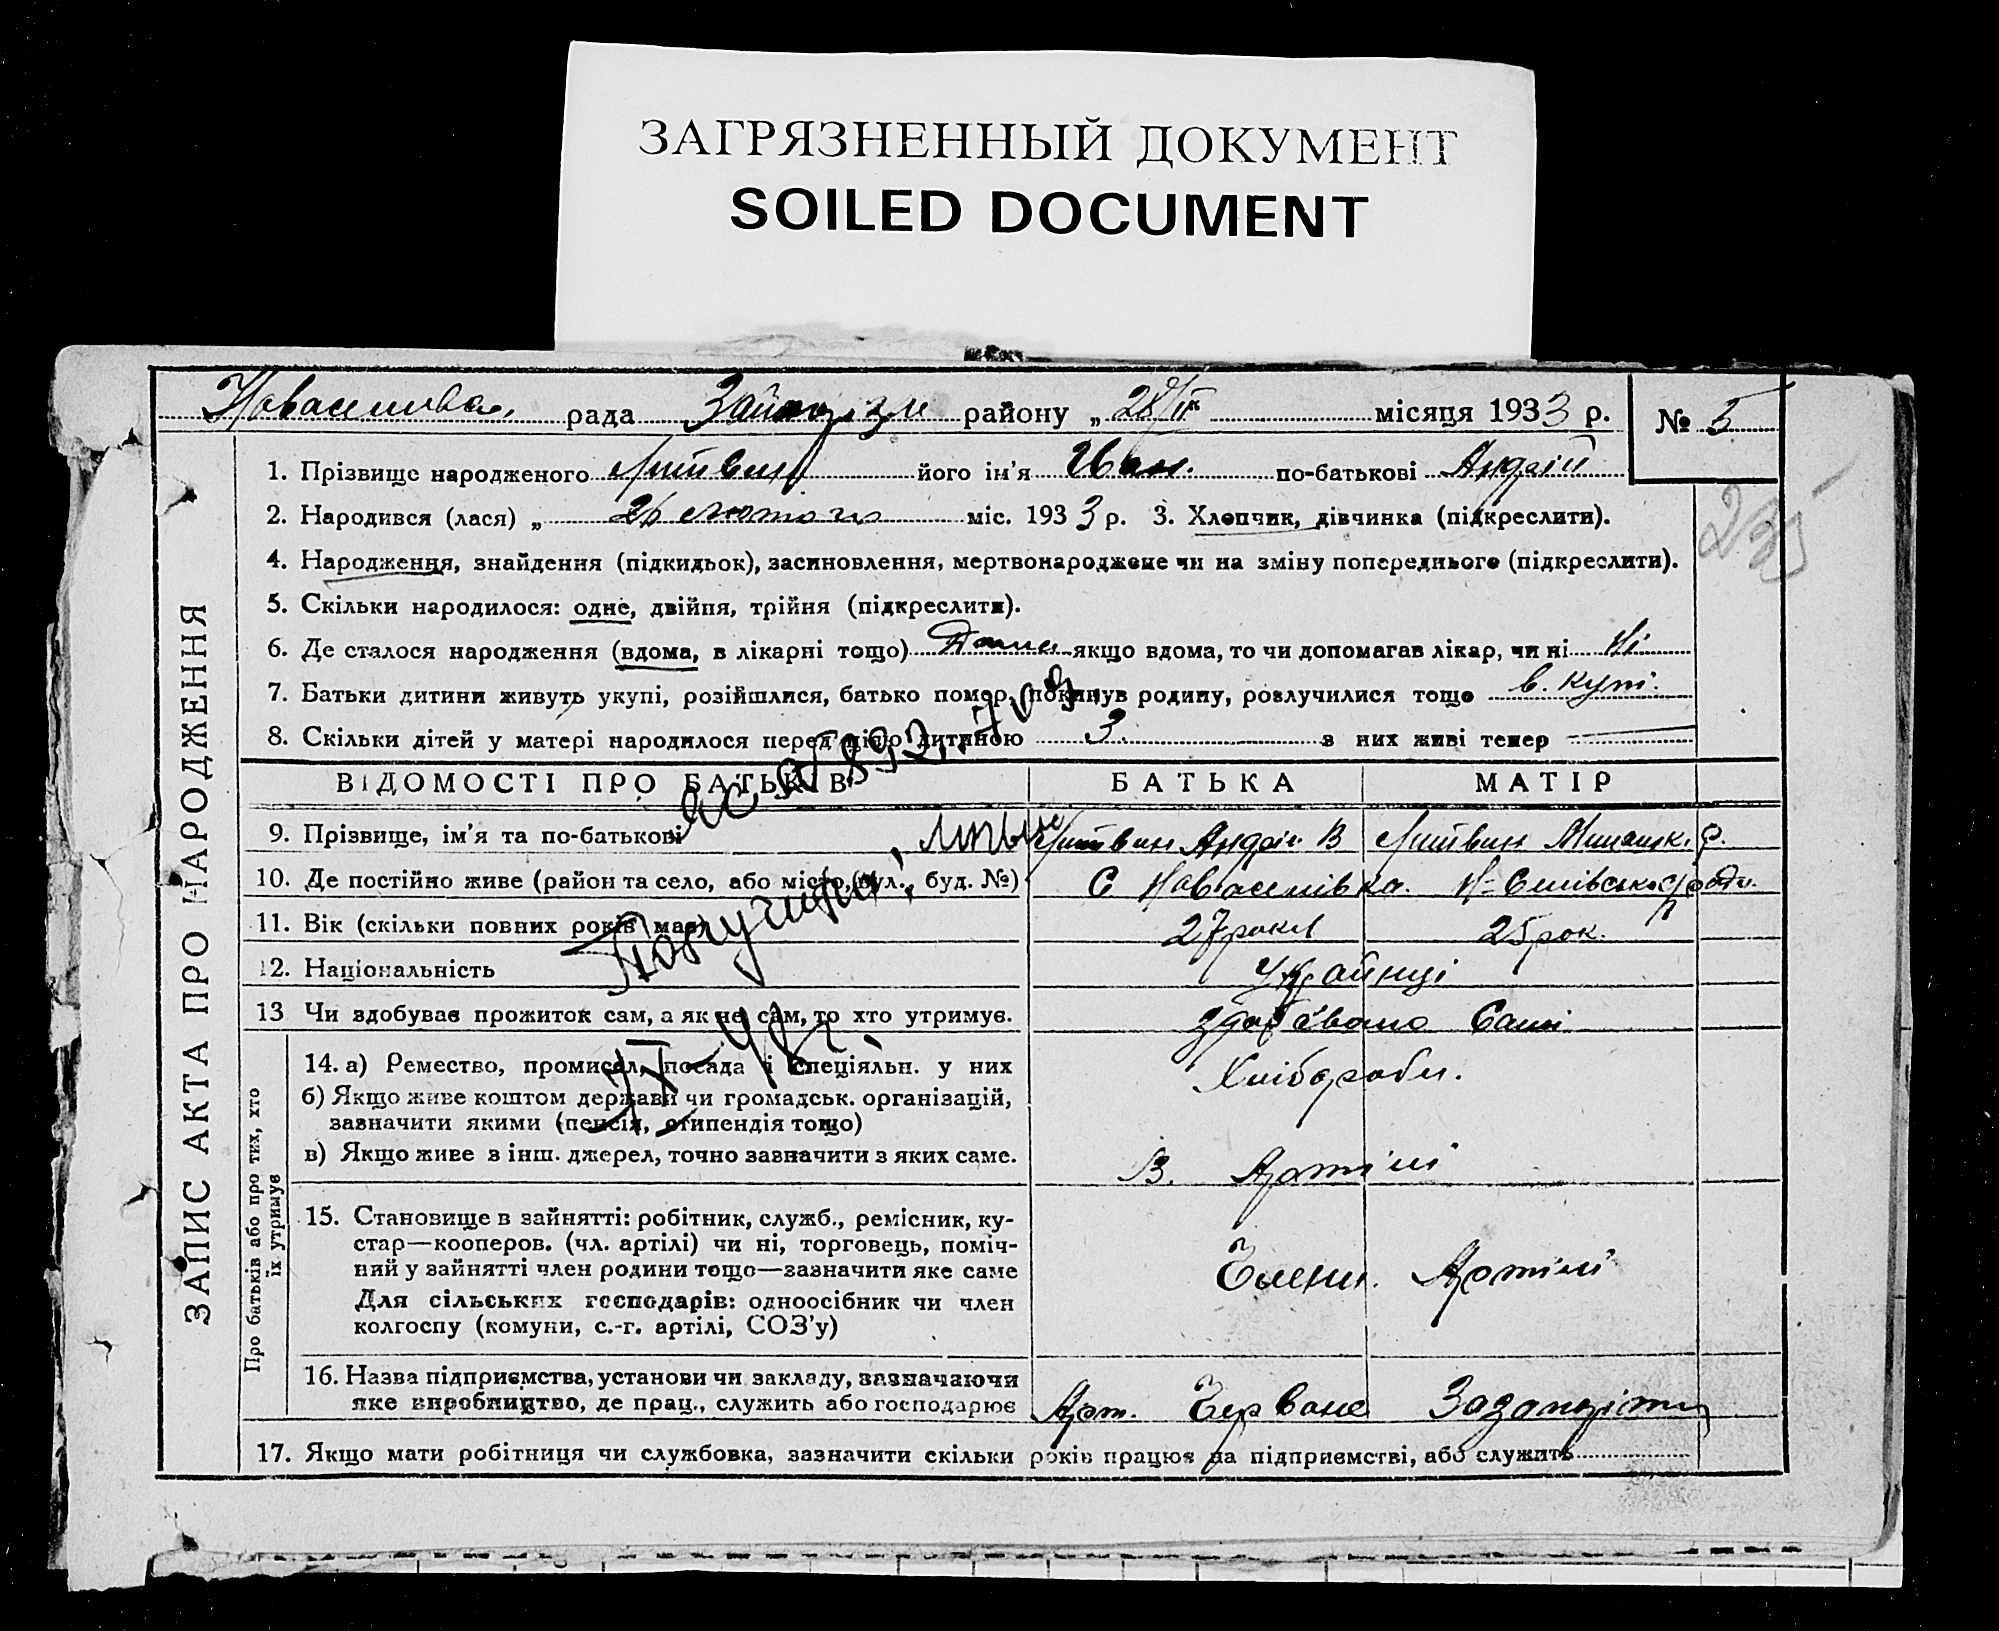 ЗАГРЯЗНЕННЫЙ ДОКУМЕНТ
SOILED DOCUMENT
рада району „28/II місяця 1933 р. № 5
1. Прізвище народженого Литвин його ім’я Иван. по-батькові Андрій
2. Народився (лася) „ 26 лютого міс. 1933 р. 3. Хлопчик, дівчинка (підкреслити).
235
4. Народження, знайдення (підкидьок), засиновлення, мертвонароджене чи на зміну попереднього (підкреслити).
5. Скільки народилося: одне, двійня, трійня (підкреслити).
6. Де сталося народження (вдома, в лікарні тощо) Дома якщо вдома, то чи допомагав лікар, чи ні Ні
7. Батьки дитини живуть укупі, розійшлися, батько помер, покинув родину, розлучилися тощо в. купі.
8. Скільки дітей у матері народилося перед цією дитиною 3. з них живі тепер
ВІДОМОСТІ ПРО БАТЬКІВ БАТЬКА МАТІР
9. Прізвище, ім’я та по-батькові Литвин Андрій В Литвин
10. Де постійно живе (район та село, або місто, вул., буд. №) С Новоселівка.
11. Вік (скільки повних років має) 27 рокив 25 рок.
12. Національність Українці
13 Чи здобував прожиток сам, а як не сам, то хто утримує. Сами
14. а) Ремество, промисел, посада і спеціяльн. у них Хлібороби.
б) Якщо живе коштом держави чи громадськ. організацій,
зазначити якими (пенсія, стипендія тощо)
в) Якщо живе з інш. джерел, точно зазначити з яких саме. В. Артілі
15. Становище в зайнятті: робітник, служб., ремісник, ку-
стар—кооперов. (чл. артілі) чи ні, торговець, поміч-
ний у зайнятті член родини тощо—зазначити яке саме
Для сільських господарів: одноосібник чи член
колгоспу (комуни, с.-г. артілі, СОЗ’у)
Члени. Артілі
16. Назва підприємства, установи чи закладу, зазначаючи
яке виробництво, де прац., служить або господарює Арт. Червоне Запоріжжя
17. Якщо мати робітниця чи службовка, зазначити скільки років працює на підприємстві, або служить
ЗАПИС АКТА ПРО НАРОДЖЕННЯ
Про батьків або про тих, хто
їх утримує